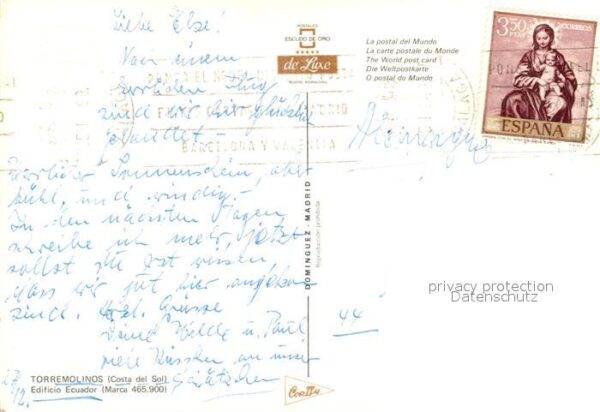 Liebe Else!
Nach einem
herrlichen Flug
sind wir hier glücklich
gelandet -
herrlicher Sonnenschein, aber
kühl, und windig -
In den nächsten Tagen
schreibe ich mehr, jetzt
sollst Du erst wissen,
dass wir gut hier angekom
sind. Herzl. Grüsse
Deine Hilde u. Paul
viele Küsschen an unser
Schätzchen
TORREMOLINOS (Costa del Sol)
Edificio Ecuador (Marca 465.900)
POSTALES
ESCUDO DE ORO
de Luxe
La postal del Mundo
La carte postale du Monde
The World post card
Die Weltpostkarte
O postal do Mundo
3,50
PTAS
CORREOS
ESPAÑA
BARCELONA Y VALENCIA
Alemania
DOMINGUEZ - MADRID
Reproducción prohibida
44
privacy protection
Datenschutz